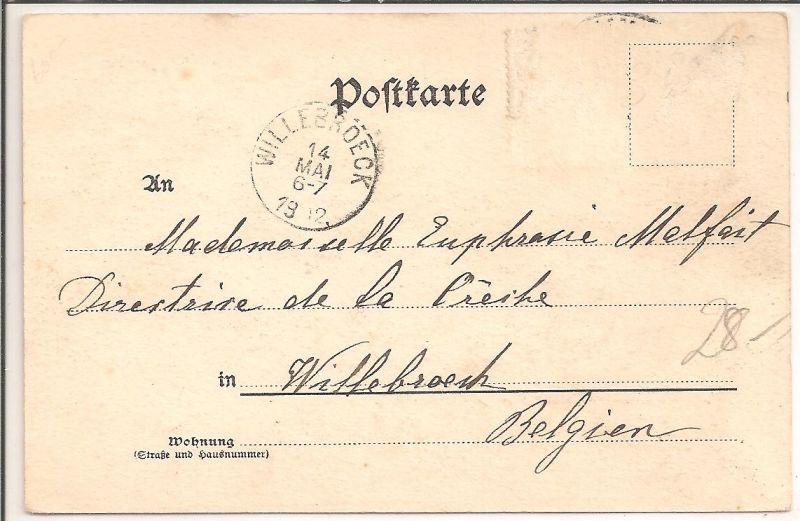 Postkarte
WILLEBROECK
14
MAI
6-7
1912
An
Mademoiselle Euphrasie Malfait
Directrice de la Crêche
in Willebroeck
Belgien
Wohnung
(Straße und Hausnummer)
28